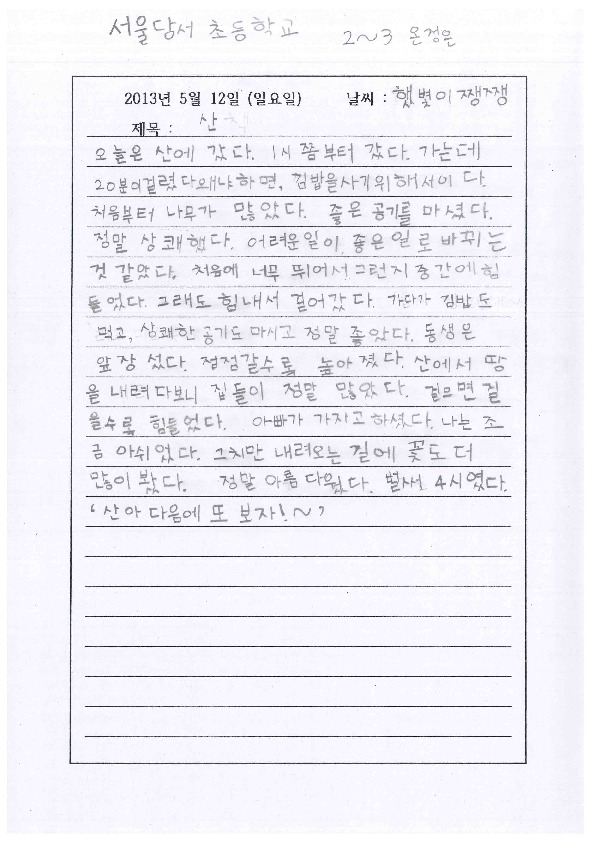 서울답서 초등학교 2~3 온정은
2013년 5월 12일 (일요일) 날씨 : 햇볓이 쨍쨍
제목 : 산책
오늘은 산에 갔다. 1시 쯤부터 갔다. 가는데
20분이걸렸다왜냐하면, 김밥을사기위해서이다.
처음부터 나무가 많았다. 좋은 공기를 마셨다.
정말 상쾌했다. 어려운일이 좋은 일로 바뀌는
것 같았다. 처음에 너무 뛰어서그런지 중간에힘
들었다. 그래도 힘내서 걸어갔다. 가다가 김밥도
먹고, 상쾌한 공기도 마시고 정말 좋았다. 동생은
앞장 섰다. 점점갈수록 높아졌다. 산에서 땅
을 내려다보니 집들이 정말 많았다. 걸으면걸
을수록 힘들었다. 아빠가 가자고 하셨다. 나는 조
금 아쉬었다. 그치만 내려오는 길에 꽃도 더
많이 봤다. 정말 아름다웠다. 벌써 4시였다.
'산아 다음에 또 보자!~'